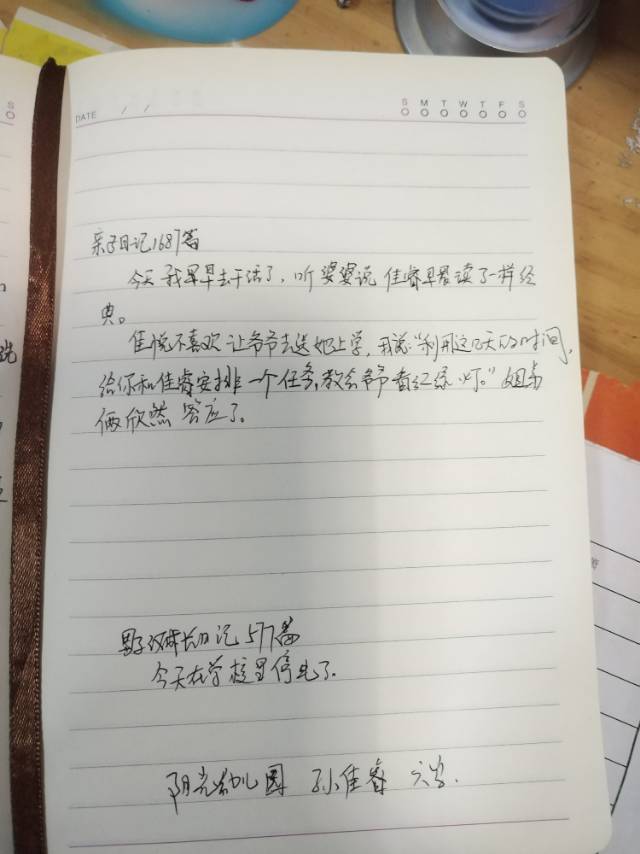 DATE / /
S M T W T F S
亲子日记1687篇
今天我早早去干活了，听婆婆说佳睿早晨读了一样经
典。
佳悦不喜欢让爷爷去送她上学，我说："利用这几天的时间，
给你和佳睿安排一个任务，教会爷爷看红绿灯。"姐弟
俩欣然答应了。
日记577篇
今天在学校里停电了.
阳光幼儿园 孙佳睿 六岁.